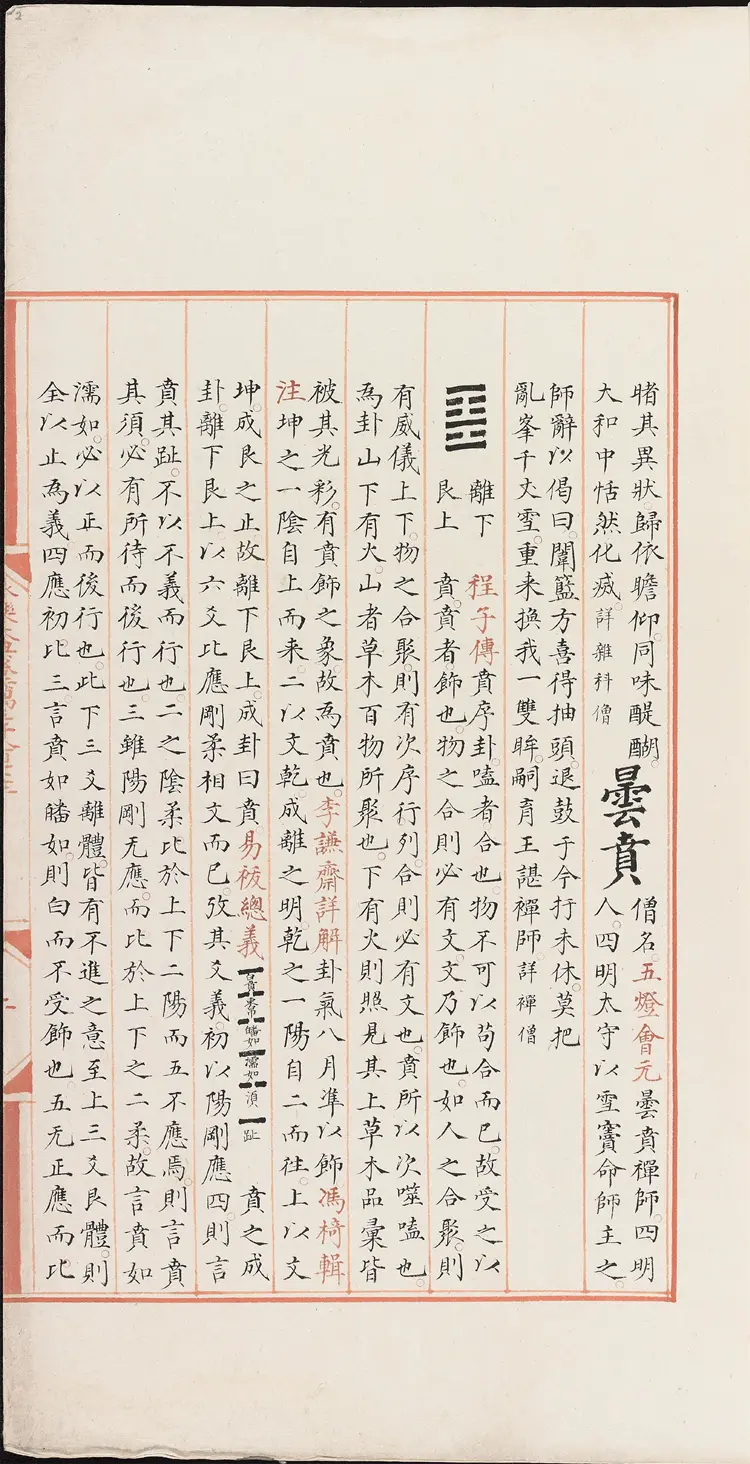 睹其異狀歸依瞻仰同味醍醐
大和中恬然化滅詳雜科僧
曇賁
僧名五燈會元曇賁禪師四明
人四明太守以雪竇命師主之
師辭以偈曰鬧籃方喜得抽頭退鼓于今打未休莫把
亂峯千丈雪重来換我一雙眸嗣育王諶禪師詳禪僧
離下
艮上
程子傳賁序卦嗑者合也物不可以苟合而已故受之以
賁賁者飾也物之合則必有文文乃飾也如人之合聚則
有威儀上下物之合聚則有次序行列合則必有文也賁所以次噬嗑也
為卦山下有火山者草木百物所聚也下有火則照見其上草木品彚皆
被其光彩有賁飾之象故為賁也李謙齋詳解卦氣八月準以飾馮椅輯
注坤之一陰自上而来二以文乾成離之明乾之一陽自二而往上以文
坤成艮之止故離下艮上成卦曰賁易祓總義
白賁
皤如
濡如
須
趾
賁之成
卦離下艮上以六爻比應剛柔相文而已攷其爻義初以陽剛應四則言
賁其趾不以不義而行也二之陰柔比於上下二陽而五不應焉則言賁
其須必有所待而後行也三雖陽剛无應而比於上下之二柔故言賁如
濡如必以正而後行也此下三爻離體皆有不進之意至上三爻艮體則
全以止為義四應初比三言賁如皤如則白而不受飾也五无正應而比